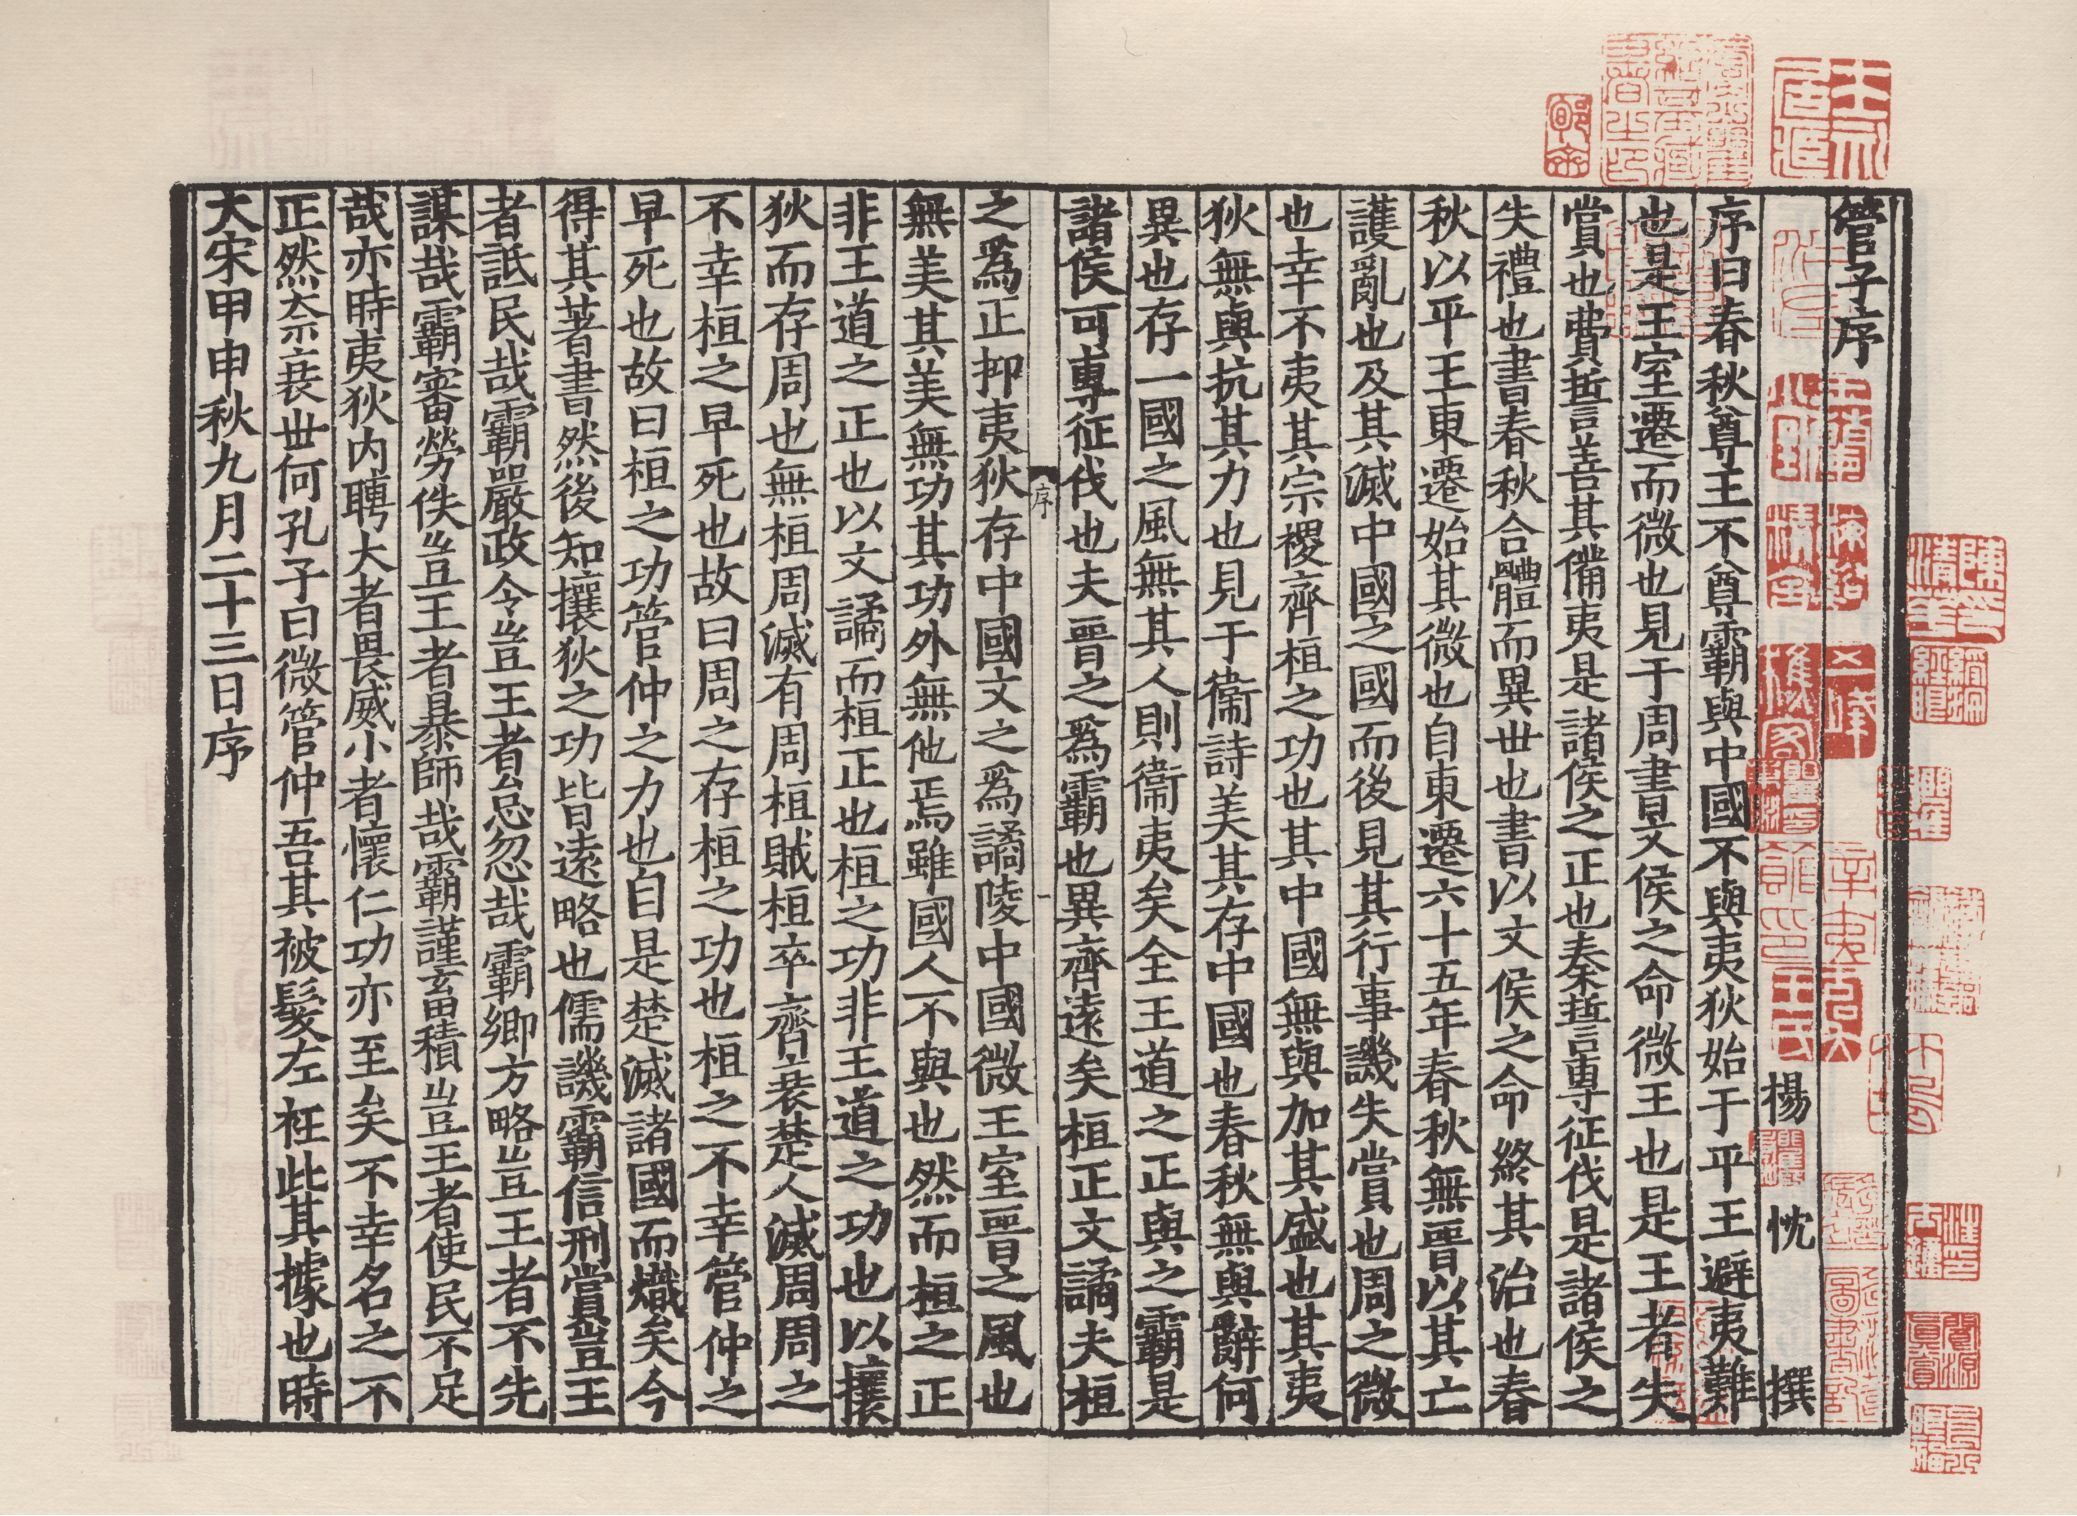 管子序
楊忱撰
序曰春秋尊王不尊霸與中國不與夷狄始于平王避夷難
也是王室遷而微也見于周書文侯之命微王也是王者失
賞也費誓善其備夷是諸侯之正也秦誓專征伐是諸侯之
失禮也書春秋合體而異世也書以文侯之命終其治也春
秋以平王東遷始其微也自東遷六十五年春秋無晉以其亡
護亂也及其滅中國之國而後見其行事譏失賞也周之微
也幸不夷其宗稷齊桓之功也其中國無與加其盛也其夷
狄無與抗其力也見于衞詩美其存中國也春秋無與辭何
異也存一國之風無其人則衞夷矣全王道之正與之霸是
諸侯可專征伐也夫晉之爲霸也異齊遠矣桓正文譎夫桓
序
一
之爲正抑夷狄存中國文之爲譎陵中國微王室晉之風也
無美其美無功其功外無他焉雖國人不與也然而桓之正
非王道之正也以文譎而桓正也桓之功非王道之功也以攘
狄而存周也無桓周滅有周桓賊桓卒齊衰楚人滅周周之
不幸桓之早死也故曰周之存桓之功也桓之不幸管仲之
早死也故曰桓之功管仲之力也自是楚滅諸國而熾矣今
得其著書然後知攘狄之功皆遠略也儒譏霸信刑賞豈王
者詆民哉霸嚴政令豈王者怠忽哉霸卿方略豈王者不先
謀哉霸審勞佚豈王者暴師哉霸謹畜積豈王者使民不足
哉亦時夷狄内聘大者畏威小者懷仁功亦至矣不幸名之不
正然奈衰世何孔子曰微管仲吾其被髮左衽此其據也時
大宋甲申秋九月二十三日序